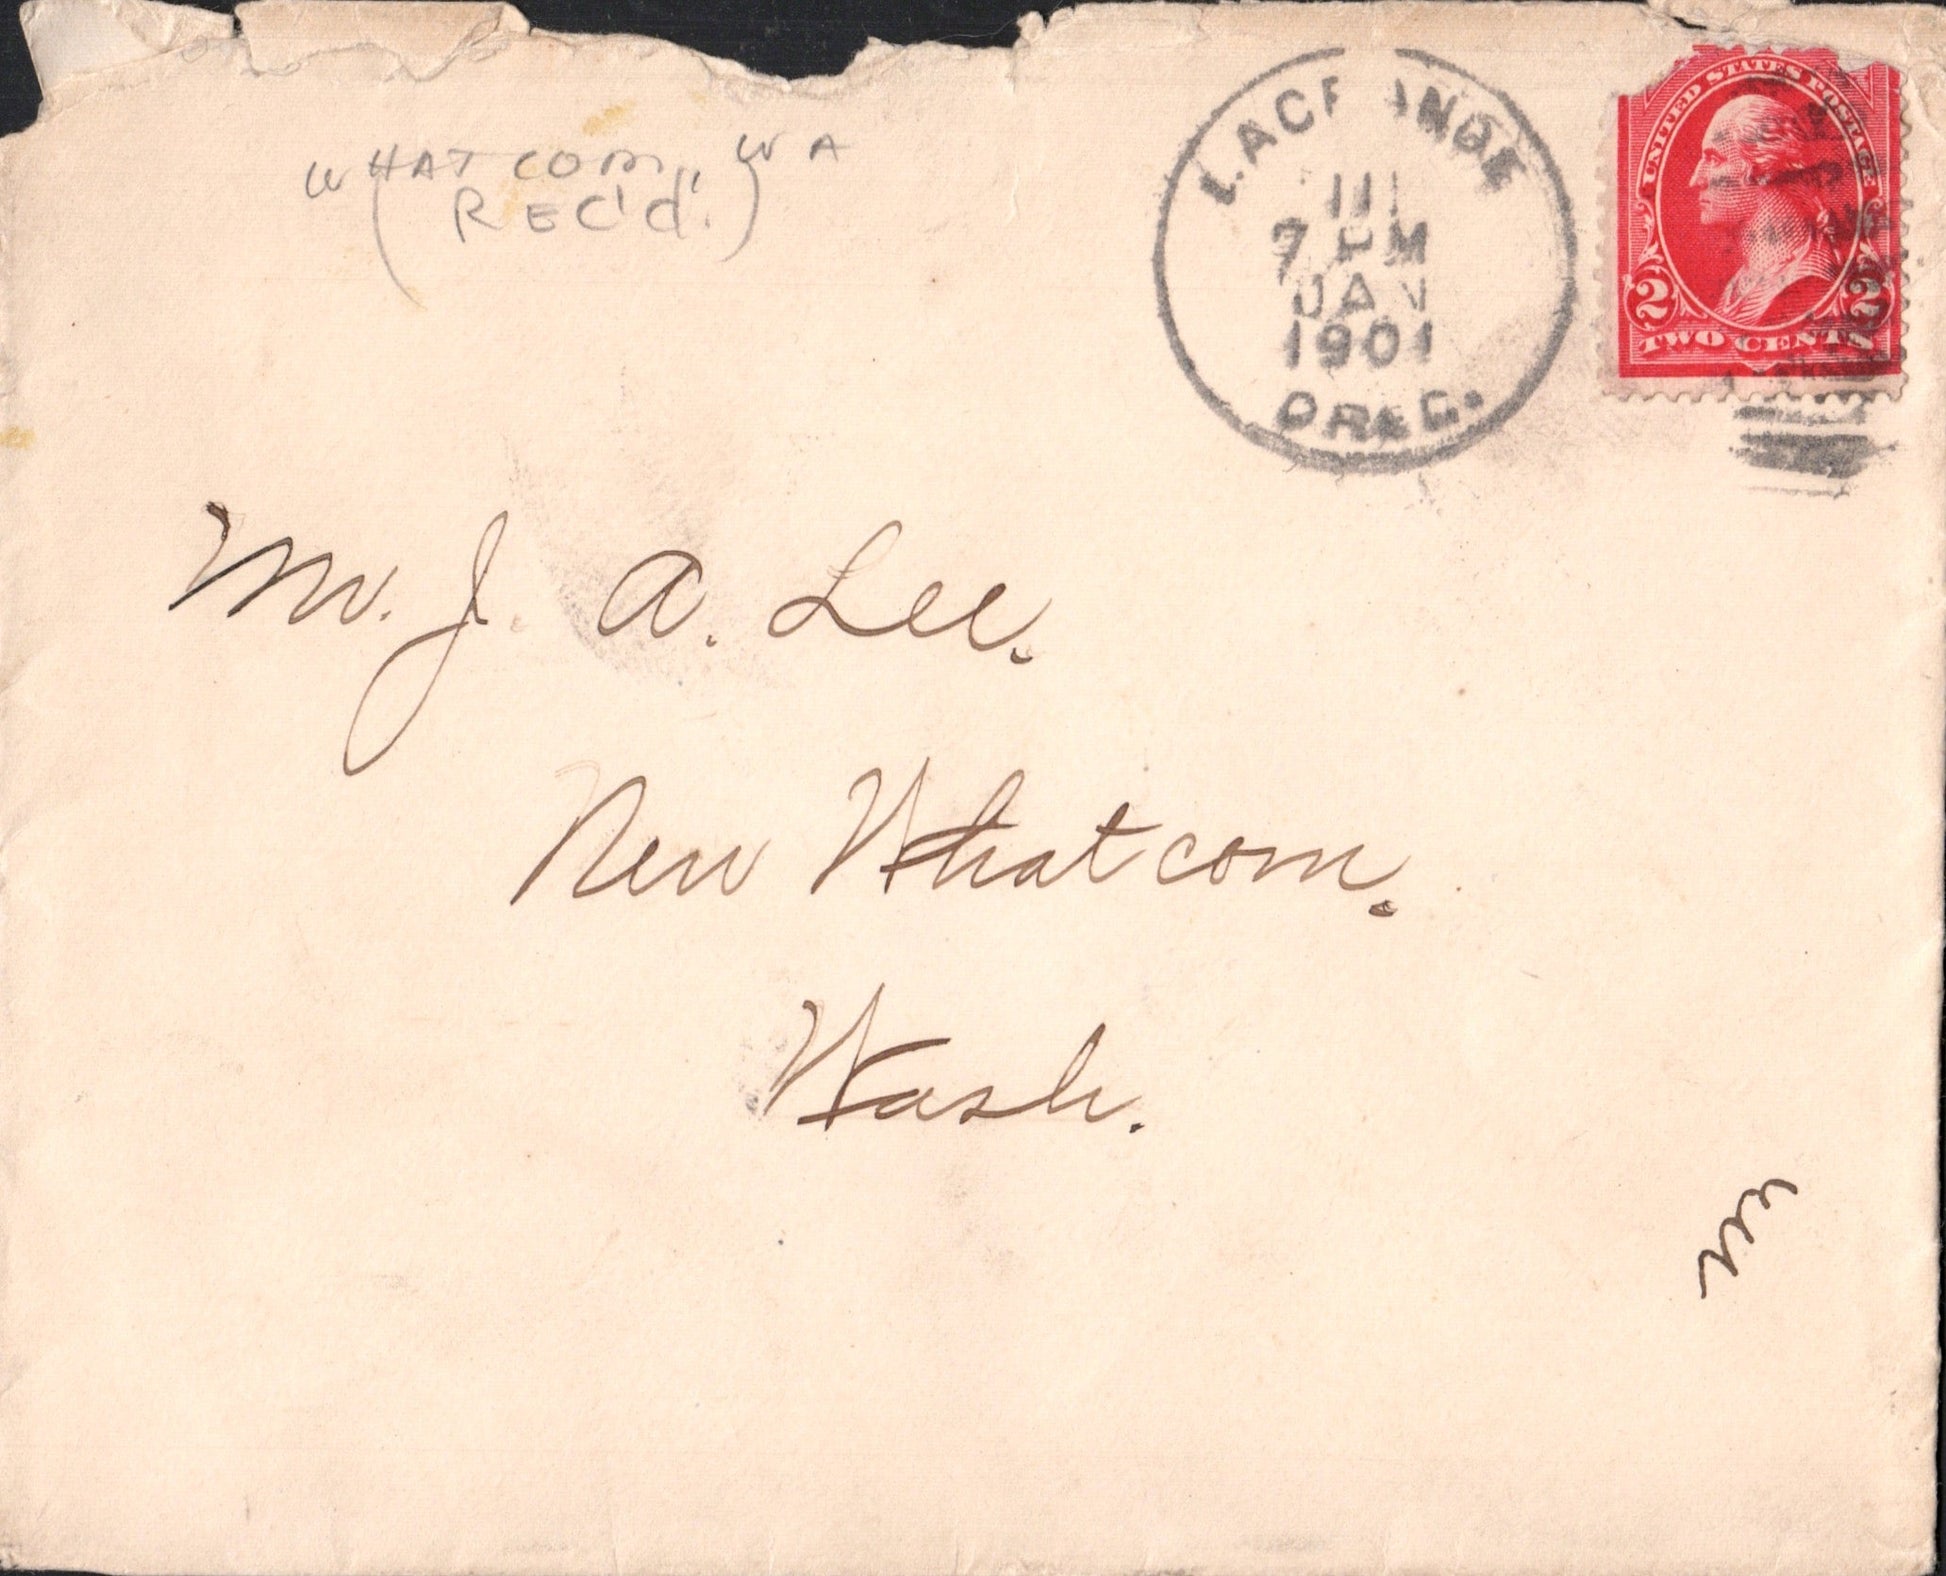 WHATCOM, WA
(REC'd.)
LAGRANDE
7 PM
JAN
1901
OREG.
UNITED STATES POSTAGE
2 2
TWO CENTS
Mr. J. A. Lee.
New Whatcom.
Wash.